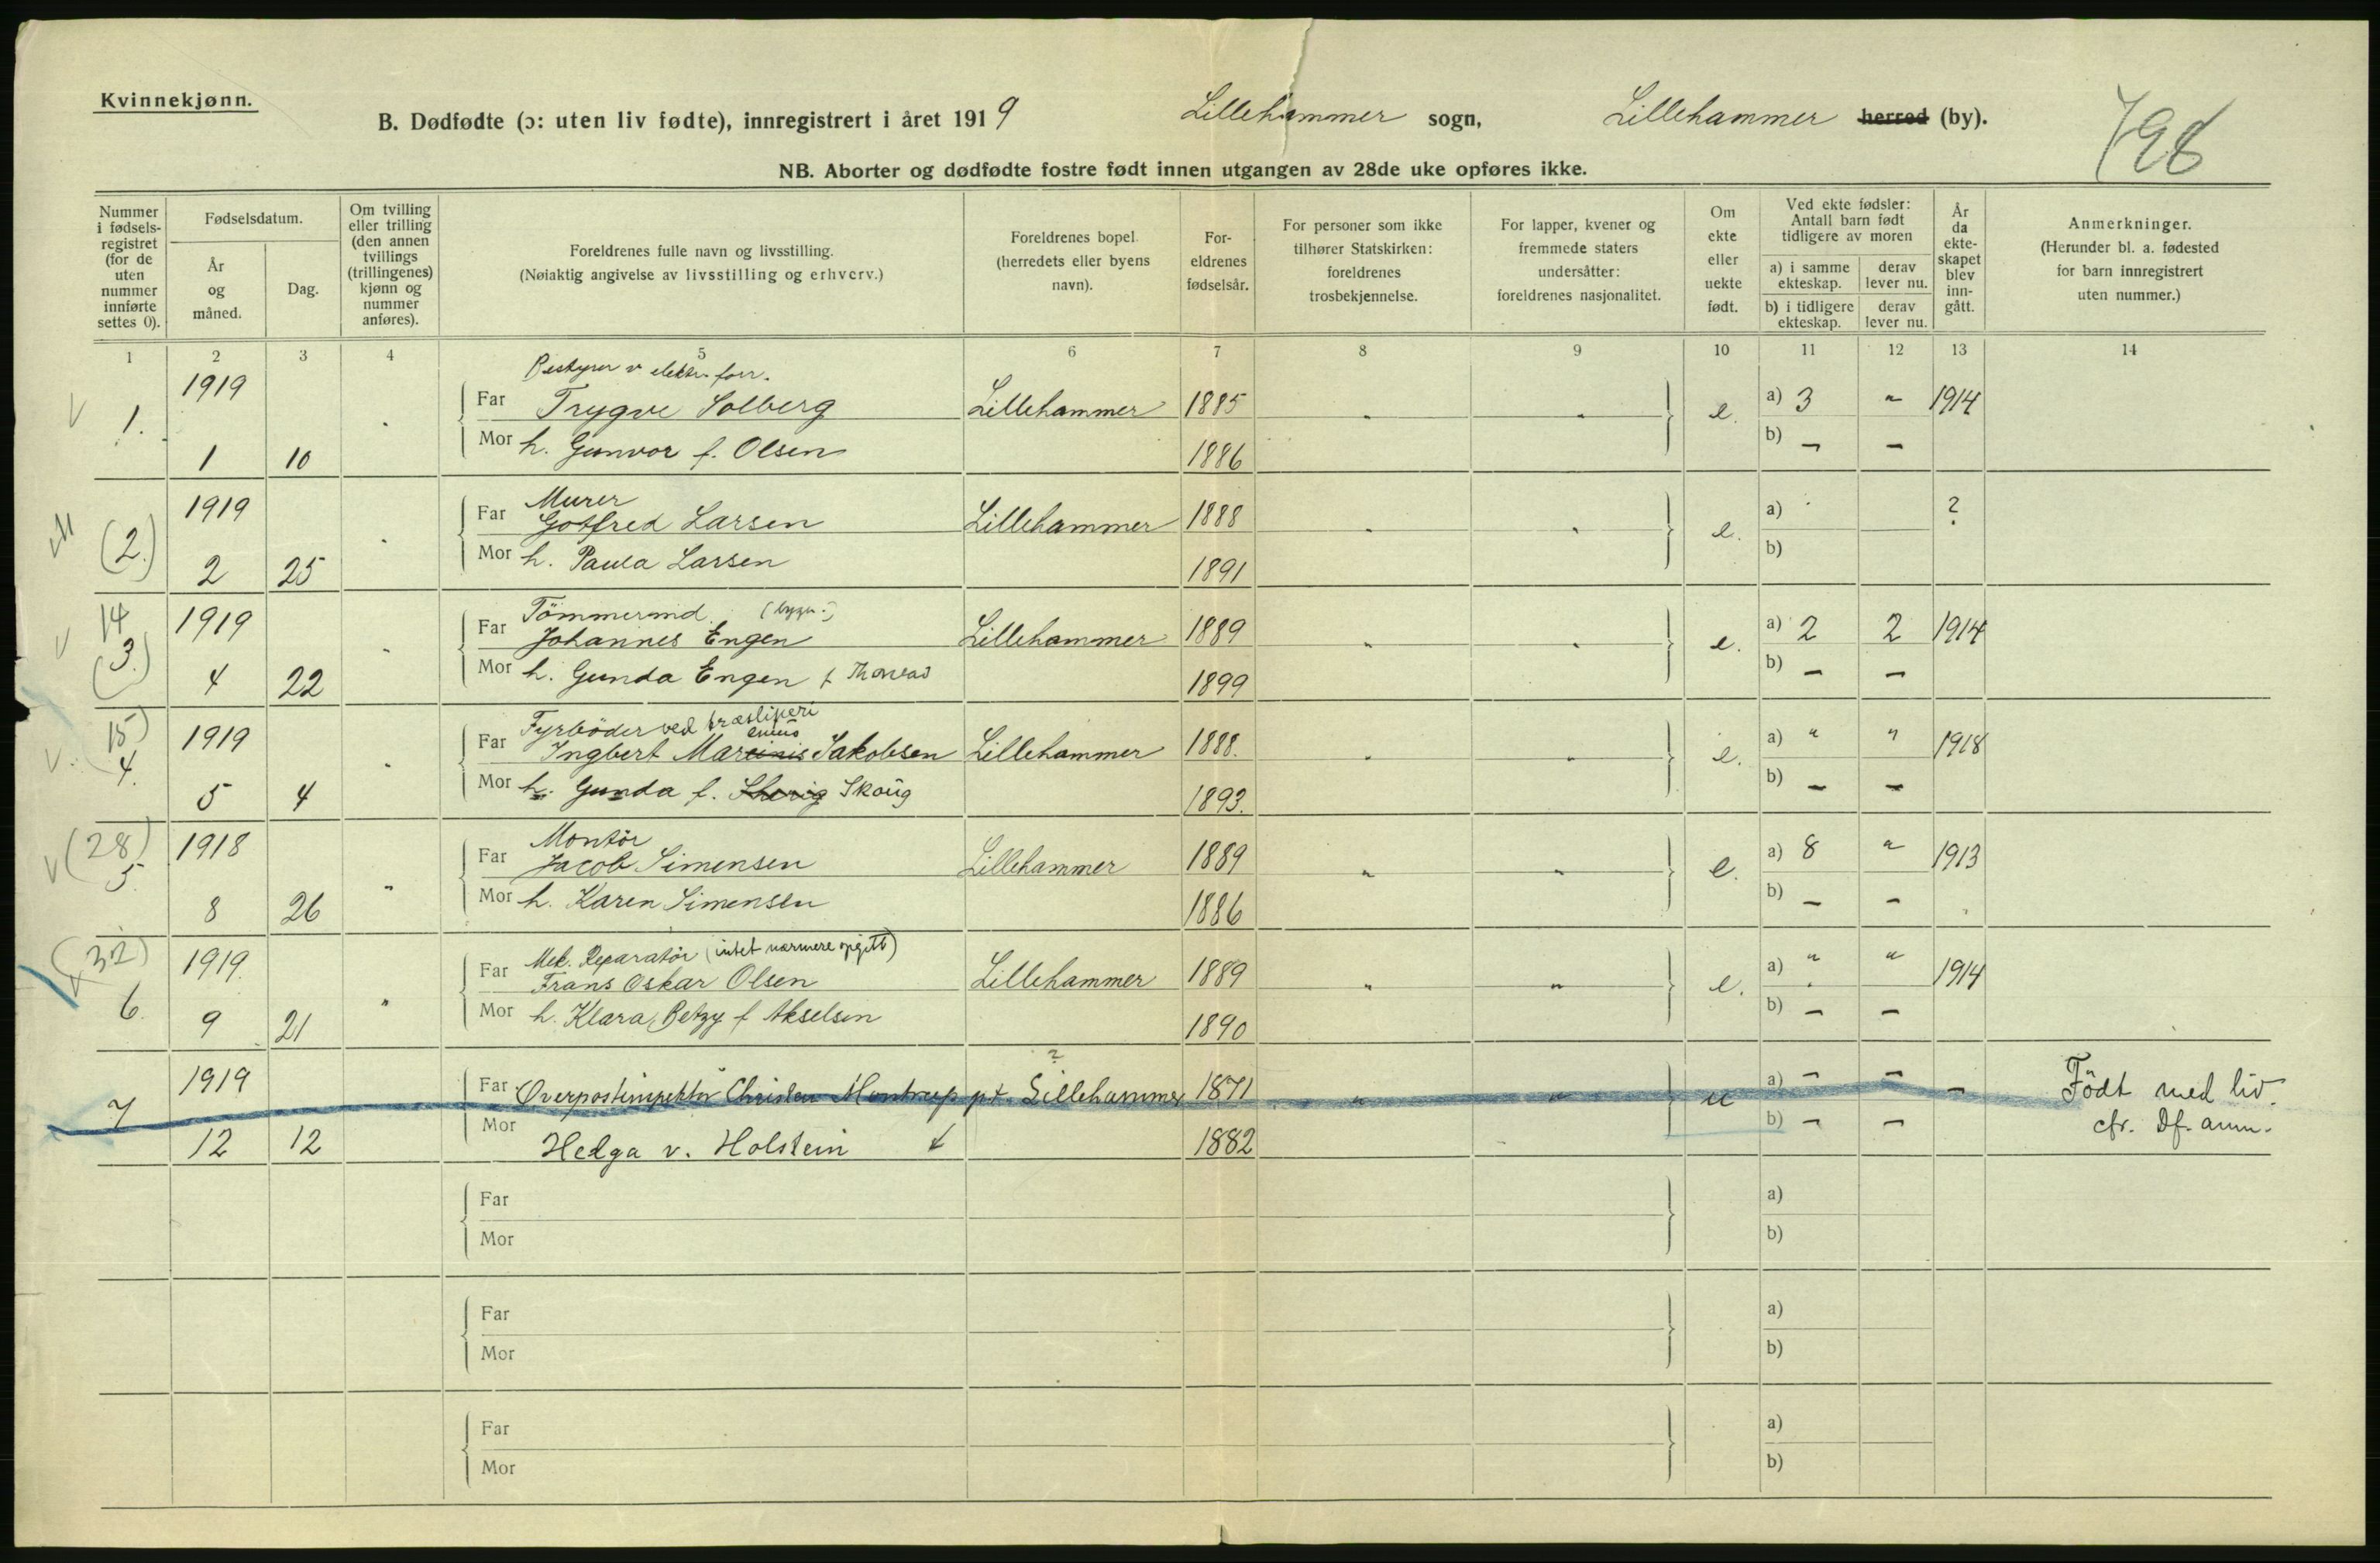 Kvinnekjønn.
B. Dødfødte (ɔ: uten liv fødte), innregistrert i året 1919 Lillehammer sogn, Lillehammer herred (by).
798
NB. Aborter og dødfødte fostre født innen utgangen av 28de uke opføres ikke.
Nummer i fødsels-registret (for de uten nummer innførte settes 0).
Fødselsdatum.
År og måned.
Dag.
Om tvilling eller trilling (den annen tvillings (trillingenes) kjønn og nummer anføres).
Foreldrenes fulle navn og livsstilling.
(Nøiaktig angivelse av livsstilling og erhverv.)
Foreldrenes bopel (herredets eller byens navn).
For-eldrenes fødselsår.
For personer som ikke tilhører Statskirken: foreldrenes trosbekjennelse.
For lapper, kvener og fremmede staters undersåtter: foreldrenes nasjonalitet.
Om ekte eller uekte født.
Ved ekte fødsler: Antall barn født tidligere av moren
a) i samme ekteskap. derav lever nu.
b) i tidligere ekteskap. derav lever nu.
År da ekte-skapet blev inn-gått.
Anmerkninger.
(Herunder bl. a. fødested for barn innregistrert uten nummer.)
1 2 3 4 5 6 7 8 9 10 11 12 13 14
Bestyrer v elektr. forr.
V 1. 1919 Far Trygve Solberg Lillehammer 1885 " " e. a) 3 " 1914
1 10 Mor h. Gunvor f. Olsen 1886 b) – –
Murer
(2.) 1919 Far Gotfred Larsen Lillehammer 1888 " " e. a) ?
2 25 Mor h. Paula Larsen 1891 b)
Tømmermd. (bygn.)
V 14 (3.) 1919 Far Johannes Engen Lillehammer 1889 " " e. a) 2 2 1914
4 22 Mor h. Gunda Engen f. 1899 b) – –
Fyrbøder ved træsliperi
V. (15) 4. 1919 Far Ingbert Marcinis enius Jakobsen Lillehammer 1888. " " e. a) " " 1918
5 4 Mor h. Gunda f. Skoug 1893. b) – –
Montør
V (28) 5. 1918 Far Jacob Simensen Lillehammer 1889 " " e. a) 8 " 1913
8 26 Mor h. Karen Simensen 1886 b) – –
Mek. Reparatør (intet nærmere opgitt)
V (32) 6. 1919. Far Frans Oskar Olsen Lillehammer 1889 " " e. a) " " 1914
9 21 Mor h. Klara Betzy f Akselsen 1890 b) – –
?
7 1919 Far Overpostinspektør Christen p.t. Lillehammer 1871 " " u a) – – – Födt med liv.
12 12 Mor Helga v. Holstein 1882 b) – – cfr. Df. anm.
Far a)
Mor b)
Far a)
Mor b)
Far a)
Mor b)